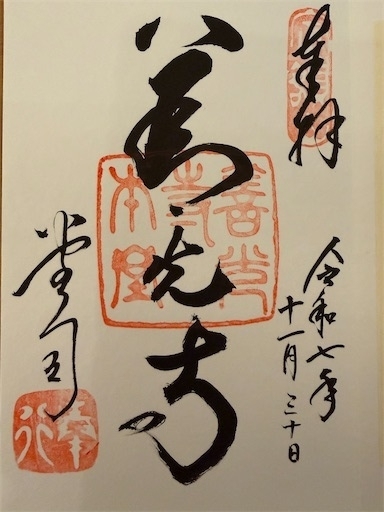 奉拝
令和七年
十一月三十日
善光寺
善光寺本堂
堂司
奉行